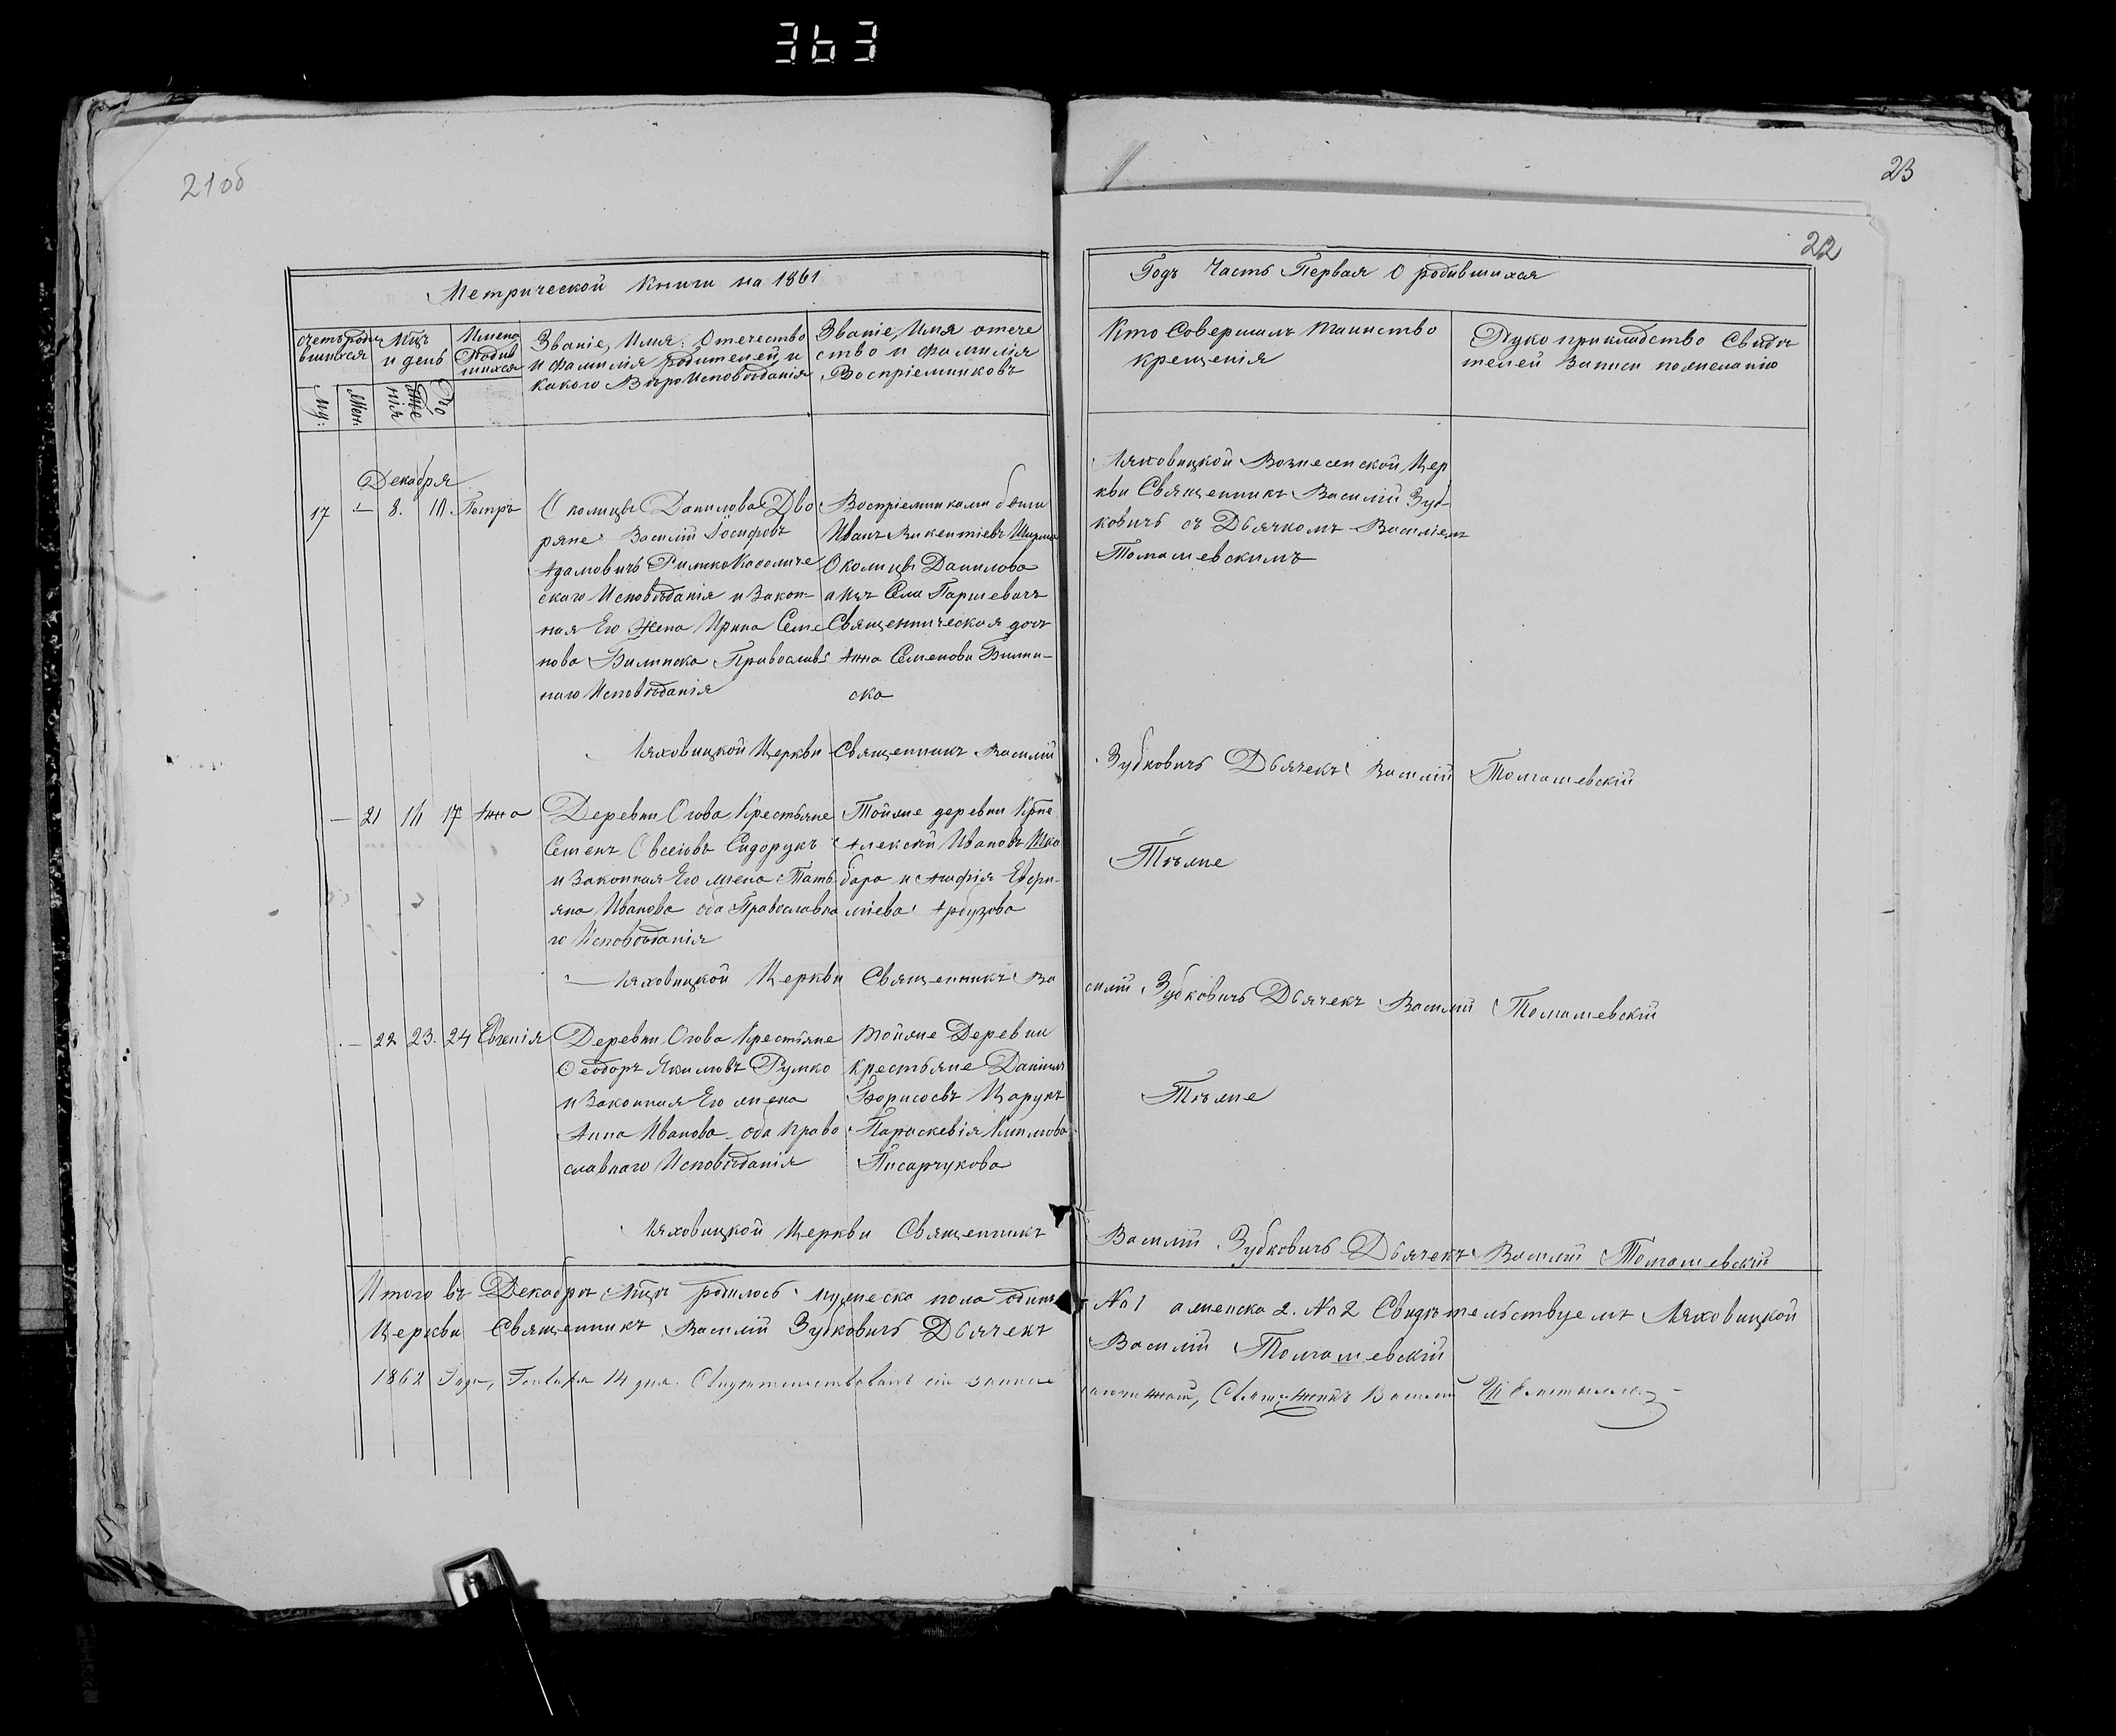 363
21об
23
22
Метрической Книги на 1861
Годъ Часть Первая О родившихся
Счетъ роди
вшихся
Мцъ
и день
Имена
Родив
шихся
Званіе, Имя: Отечество
и фамилія родителей и
какого Вѣроисповѣданія
Званіе, Имя отече
ство и фамилія
Воспріемниковъ
Кто Совершалъ таинство
крещенія
Рукоприкладство Свидѣ
телей Записи пожеланію
Му:
Жен:
Декабря
17 — 8. Петръ
Околицы Данилова Дво
ряне: Василій Іосифовъ
Адамовичъ Римкокатоличе
скаго Исповѣданія и Закон-
ная Его Жена Ирина Семе
нова Билинска Православ
наго Исповѣданія
Воспріемниками были
Иванъ Викентіевъ Ширма
Околицы Данилова
Села Паршевичъ
Священническая дочь
Анна Семенова Билин-
ска
Ляховицкой Вознесенской Цер
кви Священникъ Василій Зуб-
ковичъ съ Дьячкомъ Василіемъ
Томашевскимъ
Ляховицкой Церкви Священникъ Василій Зубковичъ Дьячекъ Василій Томашевскій
— 21 16 17 Анна
Деревни Огова Крестьяне
Семенъ Овсеіовъ Сидорукъ
и Законная Его жена Тать
яна Иванова оба Православна
го Исповѣданія
Тойже деревни Крне
Алексѣй Ивановъ Шко
бара и Агафія Ефри-
міева Арбузова
Тѣже
Ляховицкой Церкви Священникъ Василій Зубковичъ Дьячекъ Василій Томашевскій
— 22 23. 24 Евгенія
Деревни Огова Крестіяне
Ѳеодоръ Якимовъ Румко
и Законная Его жена
Анна Иванова оба Право
славнаго Исповѣданія
тойже Деревни
крестьяне Даніилъ
Борисовъ Царукъ
Параскевія Климова
Писарчукова
Тѣже
Ляховицкой Церкви Священникъ Василій Зубковичъ Дьячекъ Василій Томашевскій
Итого въ Декабрѣ Мцѣ родилось мужеска пола одинъ No 1 а женска 2. No 2 Свидѣтельствуемъ Ляховицкой
Церкви Священникъ Василій Зубковичъ Дьячекъ Василій Томашевскій
1862 Года, Генваря 14 дня. Свидѣтельствовалъ сіи записи Священникъ Василій